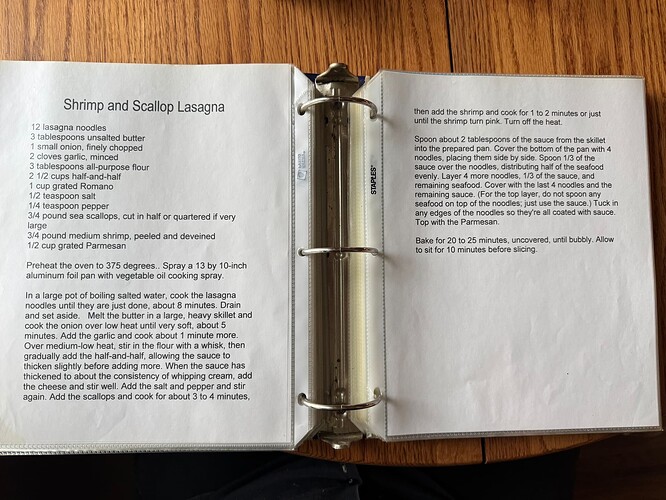 Shrimp and Scallop Lasagna
12 lasagna noodles
3 tablespoons unsalted butter
1 small onion, finely chopped
2 cloves garlic, minced
3 tablespoons all-purpose flour
2 1/2 cups half-and-half
1 cup grated Romano
1/2 teaspoon salt
1/4 teaspoon pepper
3/4 pound sea scallops, cut in half or quartered if very
large
3/4 pound medium shrimp, peeled and deveined
1/2 cup grated Parmesan
Preheat the oven to 375 degrees.. Spray a 13 by 10-inch
aluminum foil pan with vegetable oil cooking spray.
In a large pot of boiling salted water, cook the lasagna
noodles until they are just done, about 8 minutes. Drain
and set aside. Melt the butter in a large, heavy skillet and
cook the onion over low heat until very soft, about 5
minutes. Add the garlic and cook about 1 minute more.
Over medium-low heat, stir in the flour with a whisk, then
gradually add the half-and-half, allowing the sauce to
thicken slightly before adding more. When the sauce has
thickened to about the consistency of whipping cream, add
the cheese and stir well. Add the salt and pepper and stir
again. Add the scallops and cook for about 3 to 4 minutes,
STAPLES
then add the shrimp and cook for 1 to 2 minutes or just
until the shrimp turn pink. Turn off the heat.
Spoon about 2 tablespoons of the sauce from the skillet
into the prepared pan. Cover the bottom of the pan with 4
noodles, placing them side by side. Spoon 1/3 of the
sauce over the noodles, distributing half of the seafood
evenly. Layer 4 more noodles, 1/3 of the sauce, and
remaining seafood. Cover with the last 4 noodles and the
remaining sauce. (For the top layer, do not spoon any
seafood on top of the noodles; just use the sauce.) Tuck in
any edges of the noodles so they're all coated with sauce.
Top with the Parmesan.
Bake for 20 to 25 minutes, uncovered, until bubbly. Allow
to sit for 10 minutes before slicing.